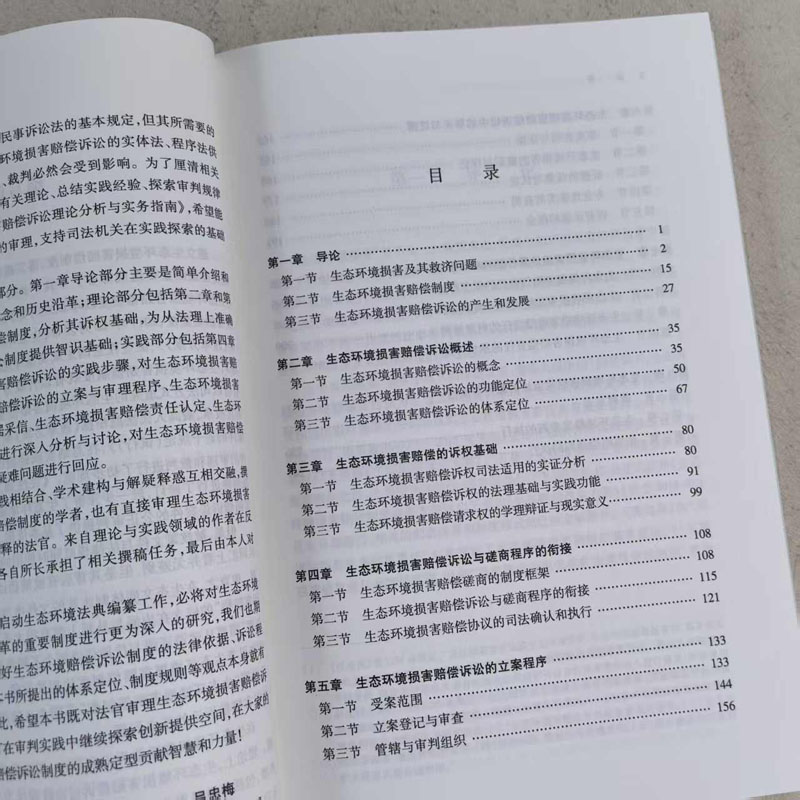 民事诉讼法的基本规定，但其所需要的
环境损害赔偿诉讼的实体法、程序法供
、裁判必然会受到影响。为了厘清相
有关理论、总结实践经验、探索审判规律
赔偿诉讼理论分析与实务指南》，希望能
的审理，支持司法机关在实践探索的基础
部分。第一章导论部分主要是简单介绍和
念和历史沿革；理论部分包括第二章和第
偿制度，分析其诉权基础，为从法理上准确
制度提供智识基础；实践部分包括第四章
害赔偿诉讼的实践步骤，对生态环境损害
赔偿诉讼的立案与审理程序、生态环境损害
采信、生态环境损害赔偿责任认定、生态环
进行深入分析与讨论，对生态环境损害赔偿
疑难问题进行回应。
践相结合、学术建构与解疑释惑互相交融，撰
赔偿制度的学者，也有直接审理生态环境损害
释的法官。来自理论与实践领域的作者在反
各自所长承担了相关撰稿任务，最后由本人对
启动生态环境法典编纂工作，必将对生态环境
革的重要制度进行更为深入的研究，我们也期
好生态环境赔偿诉讼制度的法律依据、诉讼程
本书所提出的体系定位、制度规则等观点本身就有
此，希望本书既对法官审理生态环境损害赔偿诉
在审判实践中继续探索创新提供空间，在大家的
赔偿诉讼制度的成熟定型贡献智慧和力量！
吕忠梅
目 录
第一章 导论 1
第一节 生态环境损害及其救济问题 2
第二节 生态环境损害赔偿制度 15
第三节 生态环境损害赔偿诉讼的产生和发展 27
第二章 生态环境损害赔偿诉讼概述 35
第一节 生态环境损害赔偿诉讼的概念 35
第二节 生态环境损害赔偿诉讼的功能定位 50
第三节 生态环境损害赔偿诉讼的体系定位 67
第三章 生态环境损害赔偿的诉权基础 80
第一节 生态环境损害赔偿诉权司法适用的实证分析 80
第二节 生态环境损害赔偿诉权的法理基础与实践功能 91
第三节 生态环境损害赔偿请求权的学理辩证与现实意义 99
第四章 生态环境损害赔偿诉讼与磋商程序的衔接 108
第一节 生态环境损害赔偿磋商的制度框架 108
第二节 生态环境损害赔偿诉讼与磋商程序的衔接 115
第三节 生态环境损害赔偿协议的司法确认和执行 121
第五章 生态环境损害赔偿诉讼的立案程序 133
第一节 受案范围 133
第二节 立案登记与审查 144
第三节 管辖与审判组织 156